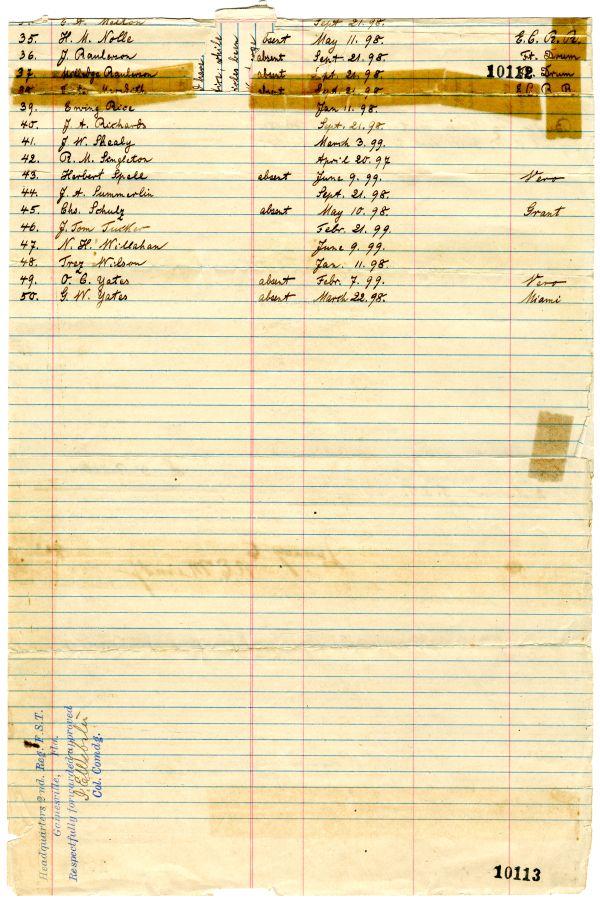 Sept 21. 98.
35. H. M. Nolle absent May 11. 98. E. C. R. R.
36. J. Raulerson absent Sept. 21. 98. Ft. Drum
37. Raulerson absent Sept. 21. 98. Drum
10112
38. absent Sept 21. 98. E. C. R. R.
39. Ewing Rice Jan 11. 98.
40. J. A. Richards Sept. 21. 98.
41. J. W. Shealy March 3. 99.
42. R. M. Singleton April 20. 97
43. Herbert Spell absent June 9. 99. Vero
44. J. A. Summerlin Sept. 21. 98
45. Chs. Schulz absent May 10. 98. Grant
46. J. Tom Tucker Febr. 21. 99.
47. N. H. Willahan June 9. 99.
48. Trez Wilson Jan. 11. 98.
49. O. C. Yates absent Febr. 7. 99. Vero
50. G. W. Yates absent March 22. 98. Miami
I have
while
been
Headquarters 2nd. Reg. F.S.T.
Gainesville, Fla.
Respectfully forwarded approved
Col. Comdg.
10113